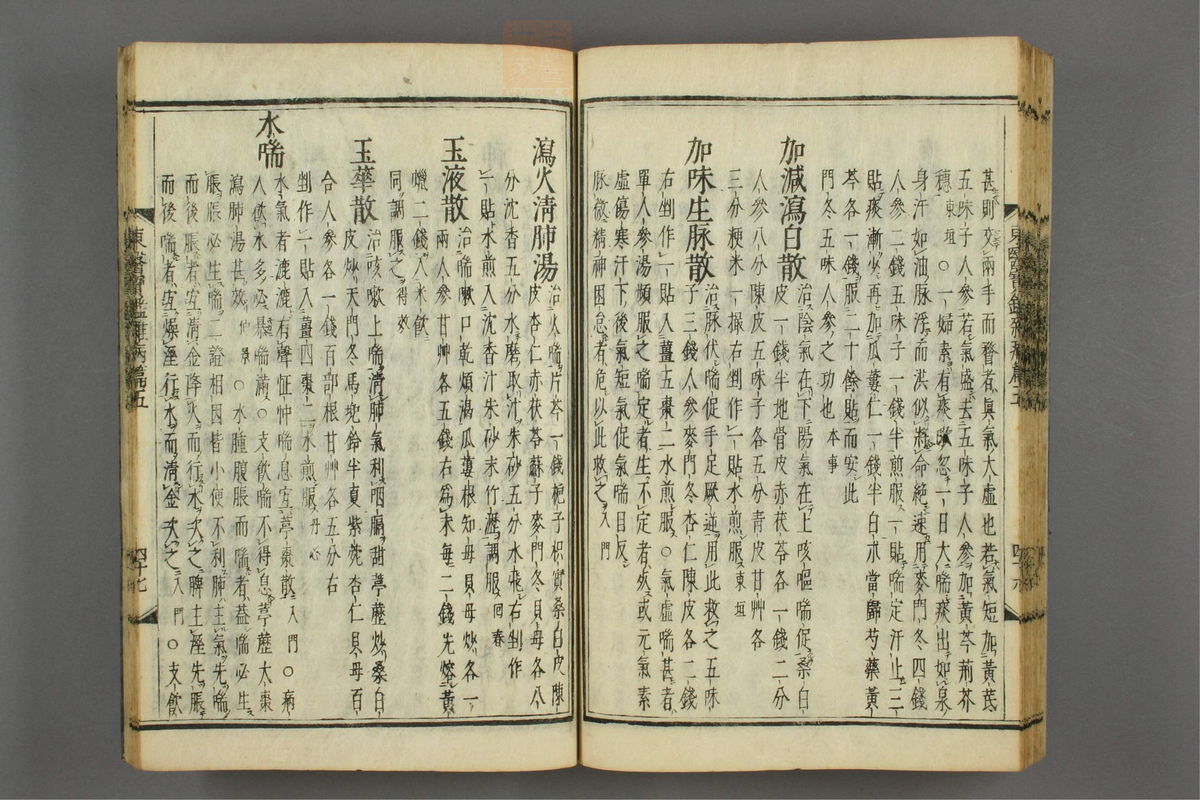 甚則交兩手而瞀者眞氣大虛也若氣短加黃芪
五味子人參若氣盛去五味子人參加黃芩荊芥
穗東垣○一婦素有痰喘忽一日大喘痰出如泉
身汗如油脉浮而洪似將命絕速用麥門冬四錢
人參二錢五味子一錢半煎服一貼喘定汗止三
貼痰漸少再加瓜蔞仁一錢半白朮當歸芍藥黃
芩各一錢服二十餘貼而安此
門冬五味人參之功也本事
加減瀉白散治陰氣在下陽氣在上咳嘔喘促桑白
皮一錢半地骨皮赤茯苓各一錢二分
人參八分陳皮五味子各五分靑皮甘艸各
三分粳米一撮右剉作一貼水煎服東垣
加味生脉散治脉伏喘促手足厥逆用此救之五味
子三錢人參麥門冬杏仁陳皮各二錢
右剉作一貼入薑五棗二水煎服○氣虛喘甚者
單人參湯頻服之喘定者生不定者死或元氣素
虛傷寒汗下後氣短氣促氣喘目反
脉微精神困怠者危以此救之入門
東醫寶鑑雜病篇五
瀉火淸肺湯治火喘片芩一錢梔子枳實桑白皮陳
皮杏仁赤茯苓蘇子麥門冬貝母各八
分沈香五分水磨取汁朱砂五分水飛右剉作
一貼水煎入沈香汁朱砂末竹瀝調服回春
玉液散治喘嗽口乾煩渴瓜蔞根知母貝母炒各一
兩人參甘艸各五錢右爲末每二錢先熔黃
蠟二錢入米飮
同調服之得效
玉華散治咳嗽上喘淸肺氣利咽膈甜葶藶炒桑白
皮炒天門冬馬兜鈴半夏紫菀杏仁貝母百
合人參各一錢百部根甘艸各五分右
剉作一貼入薑四棗二水煎服丹心
水喘
水氣者漉漉有聲怔忡喘息宜葶棗散入門○病
人飮水多必暴喘滿○支飮喘不得息葶藶大棗
瀉肺湯甚效仲景○水腫腹脹而喘者蓋喘必生
脹脹必生喘二證相因皆小便不利肺主氣先喘
而後脹者宜淸金降火而行水次之脾主濕先脹
而後喘者宜燥濕行水而淸金次之入門○支飮
東醫寶鑑雜病篇五